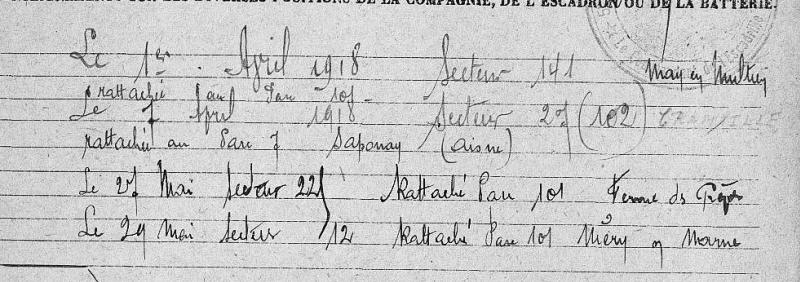 RENSEIGNEMENTS SUR LES DIVERSES POSITIONS DE LA COMPAGNIE, DE L'ESCADRON OU DE LA BATTERIE.
Le 1er. April 1918 Secteur 141 May en Multien
rattachée au Parc 101
Le 7 April 1918 Secteur 27 (102)
rattachée au Parc 7 Saponay (aisne)
Le 27 Mai Secteur 22 Rattaché Parc 101 Ferme des
Le 29 Mai Secteur 12 Rattaché Parc 101 Méry s/ Marne